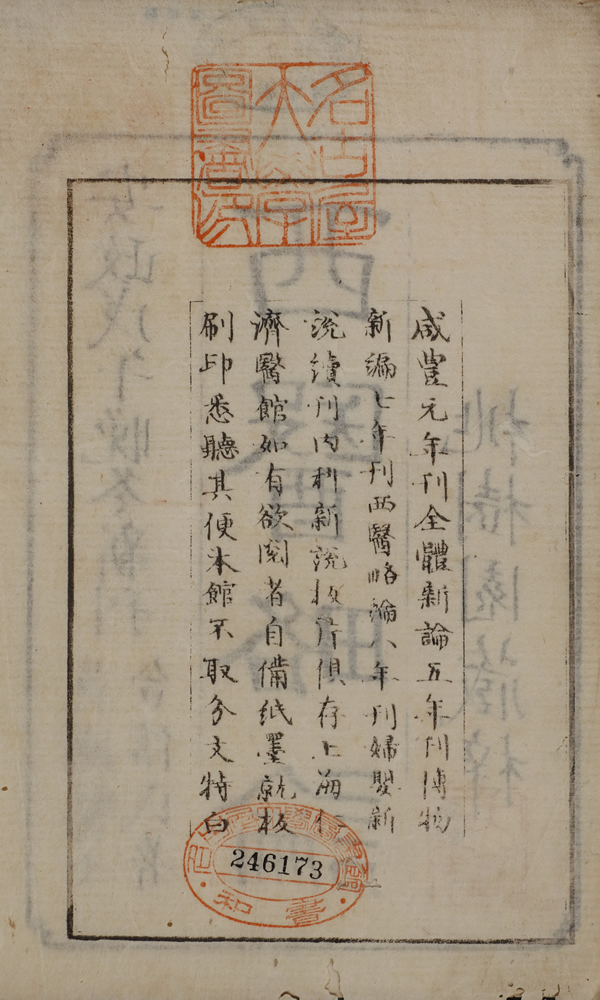 名古屋
大學
圖書印
咸豐元年刊全體新論五年刊博物
新編七年刊西醫略論八年刊婦嬰新
說續刊內科新說板片俱存上海仁
濟醫館如有欲閱者自備紙墨就板
刷印悉聽其便本館不取分文特白
246173
和
書